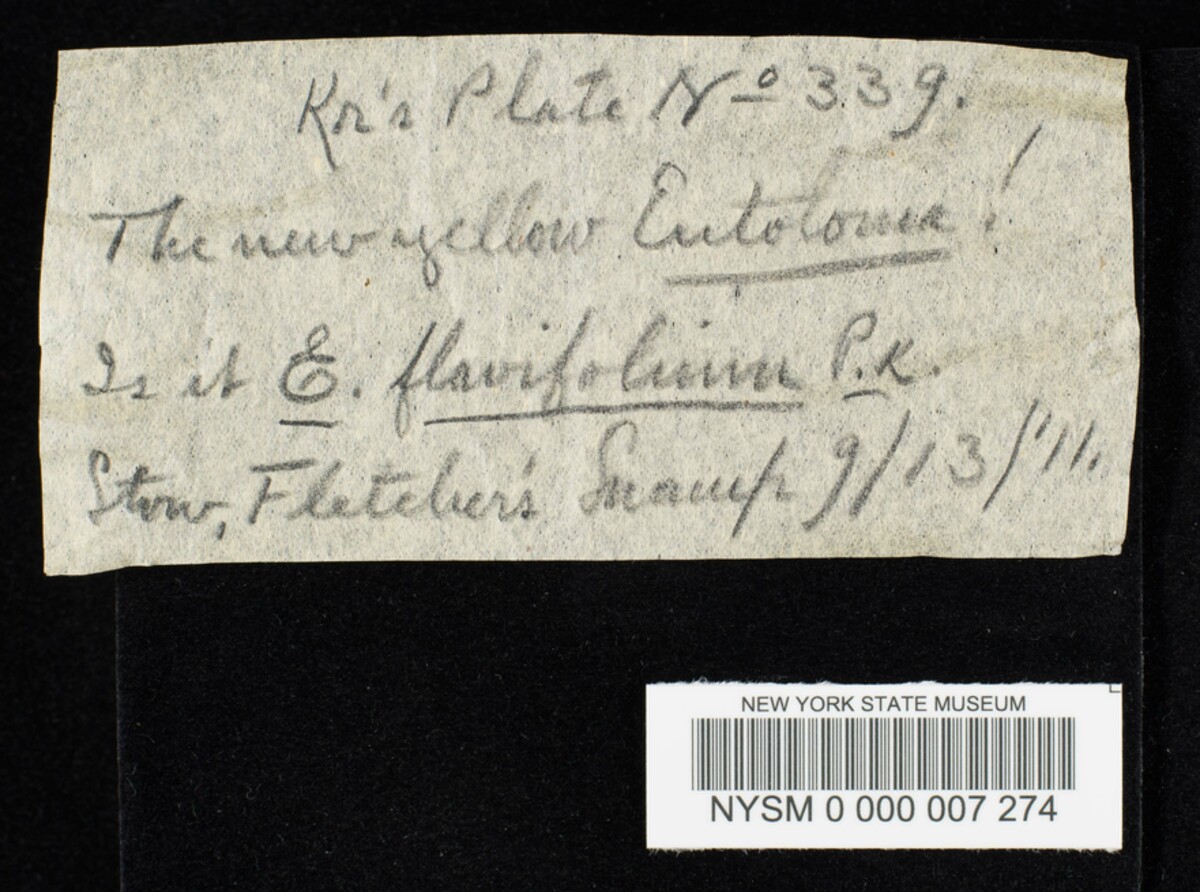 Kr's Plate No 339.
The new yellow Entoloma!
Is it E. flavifolium P.K.
Stow, Fletcher's Swamp 9/13/'11.
NEW YORK STATE MUSEUM
NYSM 0 000 007 274